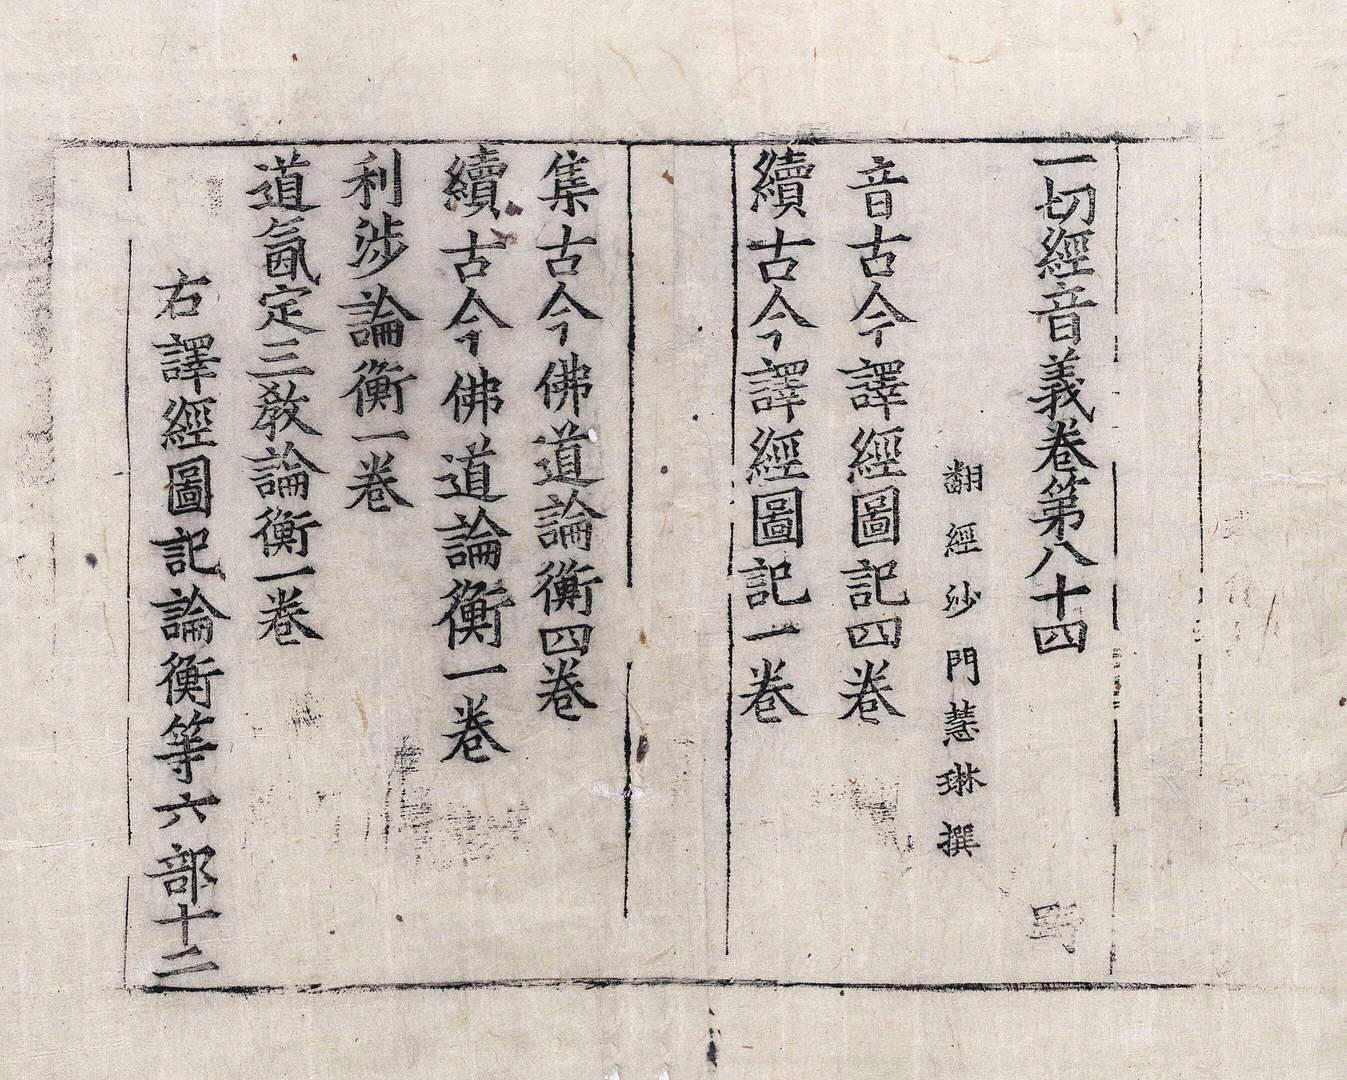 一切經音義卷第八十四 野
翻經沙門慧琳撰
音古今譯經圖記四卷
續古今譯經圖記一卷
集古今佛道論衡四卷
續古今佛道論衡一卷
利涉論衡一卷
道氤定三教論衡一卷
右譯經圖記論衡等六部十二